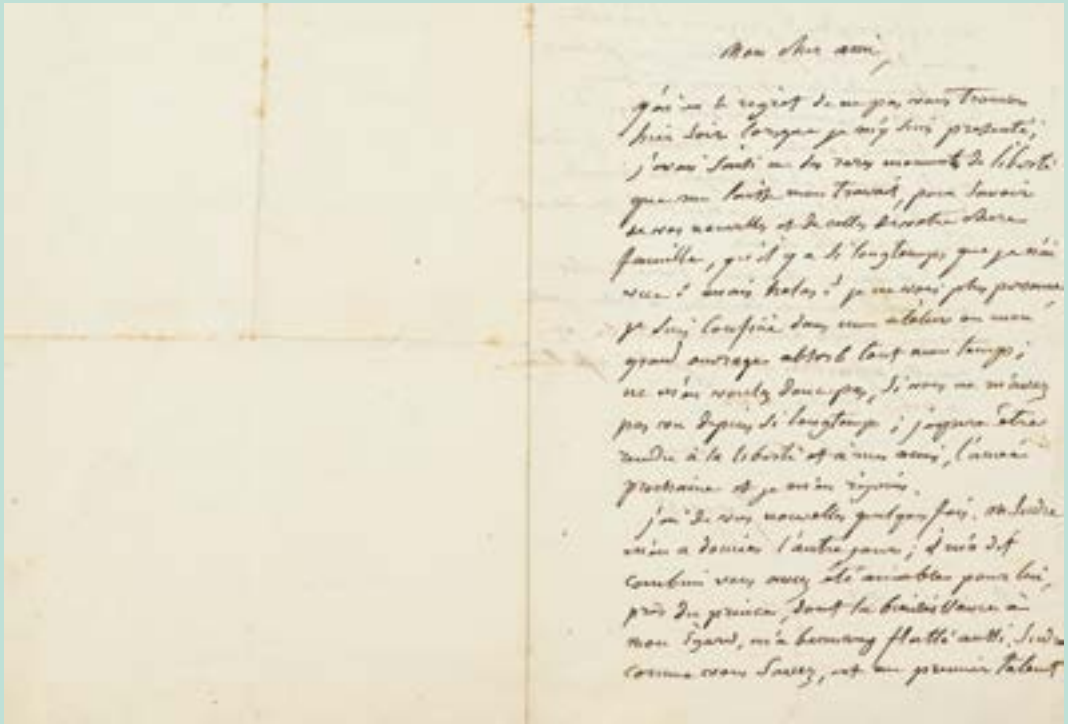 Mon cher ami,
j'ai eu le regret de ne pas vous trouver
hier soir lorsque je m'y suis présenté;
j'avais saisi un des rares moments de liberté
que me laisse mon travail, pour savoir
de vos nouvelles et de celles de votre chère
famille, qu'il y a si longtemps que je n'ai
vue! mais hélas! je ne vois plus personne,
je suis confiné dans mon atelier où mon
grand ouvrage absorbe tout mon temps;
ne m'en voulez donc pas, si vous ne m'avez
pas vu depuis si longtemps; j'espère être
rendu à la liberté et à mes amis, l'année
prochaine et je m'en réjouis.
j'ai de vos nouvelles quelques fois.
m'en a données l'autre jour; il m'a dit
combien vous avez été aimables pour lui,
près du prince, dont la bienveillance à
mon égard, m'a beaucoup flatté aussi.
comme vous savez, est un premier talent